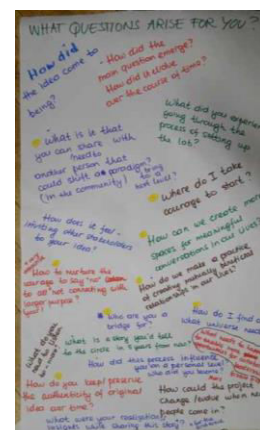 WHAT QUESTIONS ARISE FOR YOU?
How did
the idea come to
being?
How did the
main question emerge?
How did it evolve
over the course of time?
What did you experien
going through the
process of setting up
the lot?
What is it that
you can share with
another person that
could shift a paradigm?
(in the community)
Where do I take
courage to start?
How does it feel
inviting other stakeholders
to your idea?
How can we create more
spaces for meaningful
conversations in our lives?
How to nurture the
courage to say "no"
to do not connecting with
larger purpose?
How do we make a practice
of creating mutually beneficial
relationship in our lives?
Who are you a
bridge for?
How do I find o
what universe need
What is a story you'd tell
to the circle in 5 years from now?
How did this process influence
you on a personal level?
How do you keep/preserve
the authenticity of original
idea over time?
How could the project
change/evolve when new
people come in?
What were your realisations
insights while sharing this story?